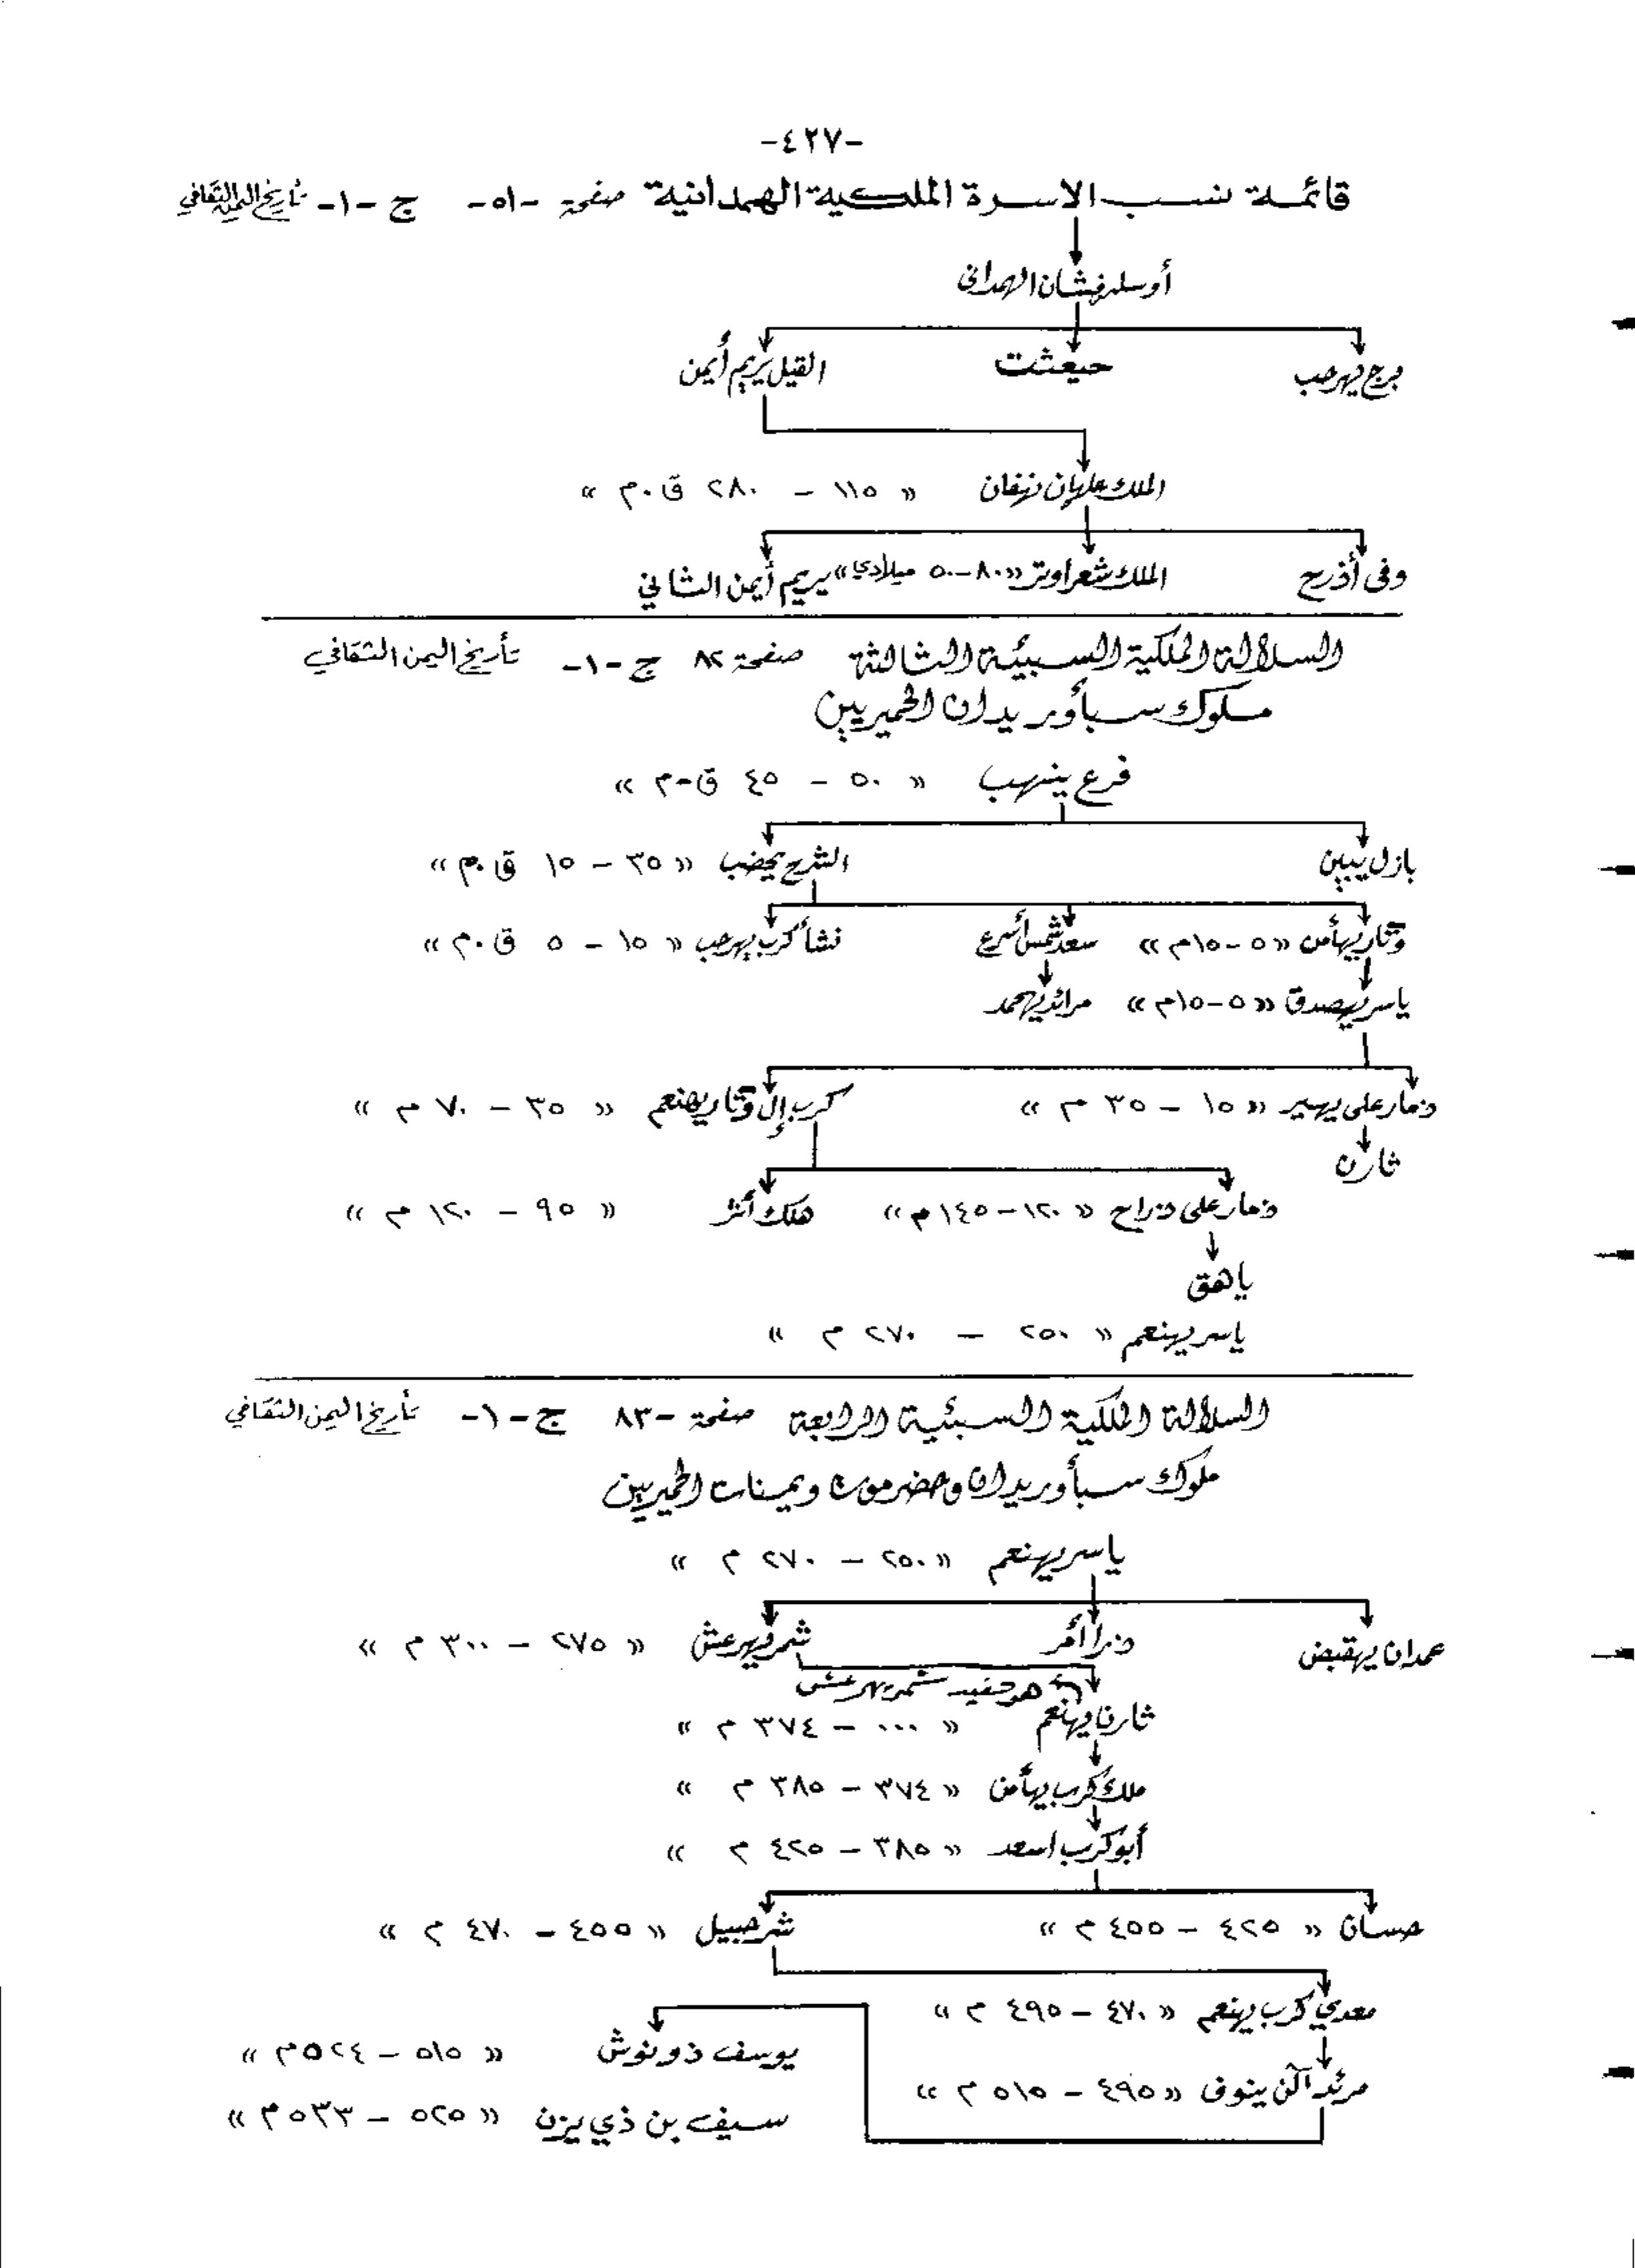 -٤٢٧-
قائمة نسب الاسرة الملكية الهمدانية صفحة -٥١- ج -١- تاريخ اليمن الثقافي
أوسلة رفشان الهمداني
برج يهرحب حيعثت القيل يريم أيمن
الملك علهان نهفان « ١١٥ - ٢٨٠ ق.م »
وفى أذرح الملك شعراوتر «٨٠-٥٠ ميلادي» يريم أيمن الثاني
السلالة الملكية السبئية الثالثة صفحة ٨٢ ج -١- تأريخ اليمن الثقافي
ملوك سبأ وريدان الحميريين
فرع ينهب « ٥٠ - ٤٥ ق-م »
بازل يبين الشرح يحضب « ٣٥ - ١٥ ق.م »
وتار يهأمن «٥-١٥م» سعد شمس أسرع نشأ كرب يهرحب « ١٥ - ٥ ق.م »
ياسر يهصدق «٥-١٥م» مراثد يهحمد
ذمار على يهبر « ١٥ - ٣٥ م » كرب إل وتار يهنعم « ٣٥ - ٧٠ م »
ثارن
ذمار على ذراح « ١٢٠ - ١٤٥ م » هلك أثر « ٩٥ - ١٢٠ م »
ياهق
ياسر يهنعم « ٢٥٠ - ٢٧٠ م »
السلالة الملكية السبئية الرابعة صفحة -٨٣ ج -١- تأريخ اليمن الثقافي
ملوك سبأ وريدان وحضرموت ويمنات الحميريين
ياسر يهنعم « ٢٥٠ - ٢٧٠ م »
عمدان يهقبض ذرا أمر شمر يهرعش « ٢٧٥ - ٣٠٠ م »
هو حفيد شمر يهرعش
ثارن يهنعم « ٠٠٠ - ٣٧٤ م »
ملك كرب يهأمن « ٣٧٤ - ٣٨٥ م »
أبو كرب اسعد « ٣٨٥ - ٤٢٥ م »
حسان « ٤٢٥ - ٤٥٥ م » شرحبيل « ٤٥٥ - ٤٧٠ م »
معدي كرب يهنعم « ٤٧٠ - ٤٩٥ م »
يوسف ذو نوش « ٥١٥ - ٥٢٤م »
مرثد آلن ينوف « ٤٩٥ - ٥١٥ م »
سيف بن ذي يزن « ٥٢٥ - ٥٣٣م »